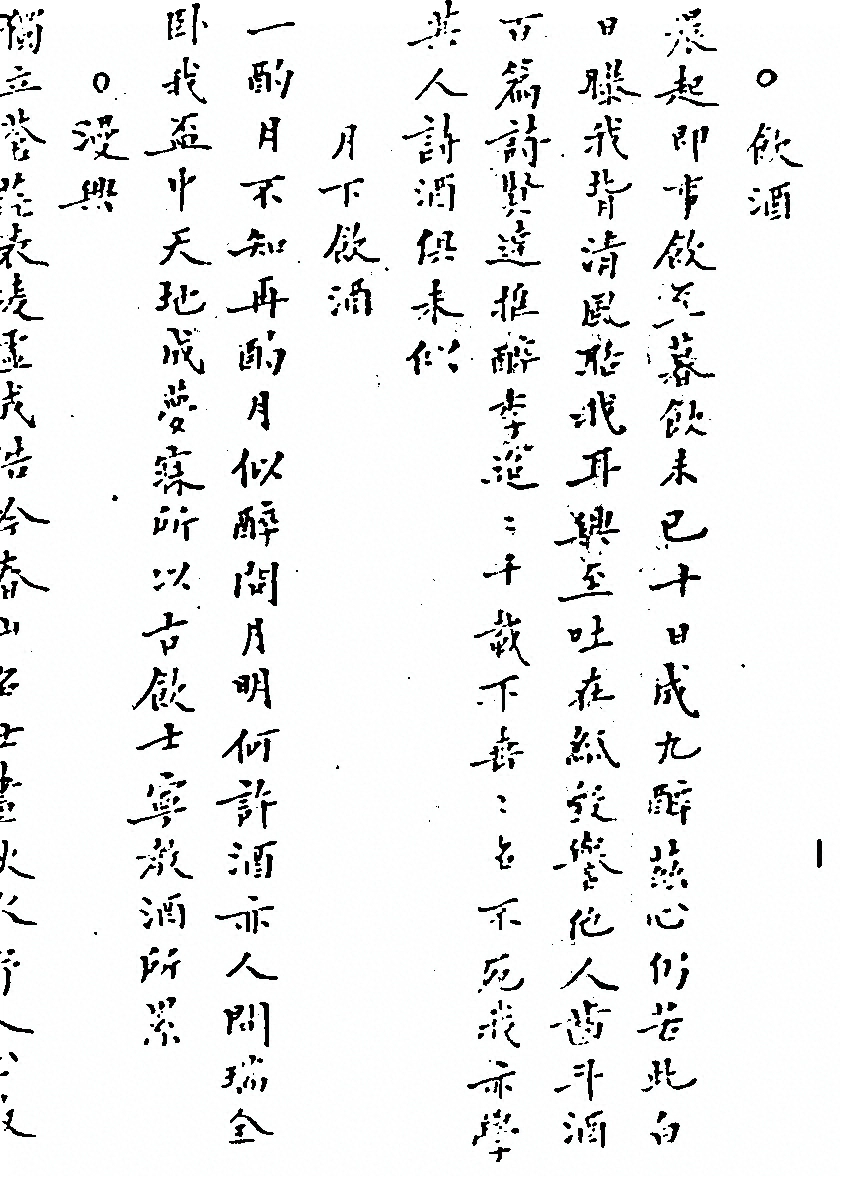 ○飲酒
晨起即事飲至暮飲未已十日成九醉茲心仍若此白
日曝我背清風聒我耳興至吐在紙毀譽他人齒斗酒
百篇詩賢達推醉李遥〻千載下垂〻名不死我亦學
其人詩酒俱未似
月下飲酒
一酌月不知再酌月似醉問月明何許酒亦人間瑞全
卧我盃中天地成夢寐所以古飲士寧教酒所累
○漫興
獨立蒼茫表凌雲成浩吟春山名士畫秋水